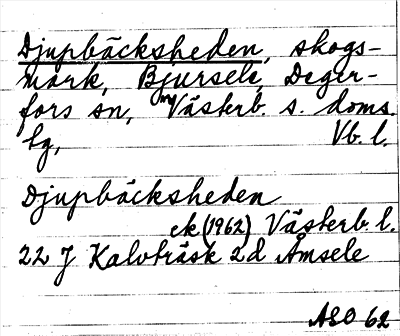 Djupbäcksheden, skogs-
mark, Bjursele, Deger-
fors sn, Västerb. s. doms.
lg, Vb. l.
Djupbäcksheden
ek (1962) Västerb. l.
22 J Kalvträsk 2d Åmsele
ASO 62